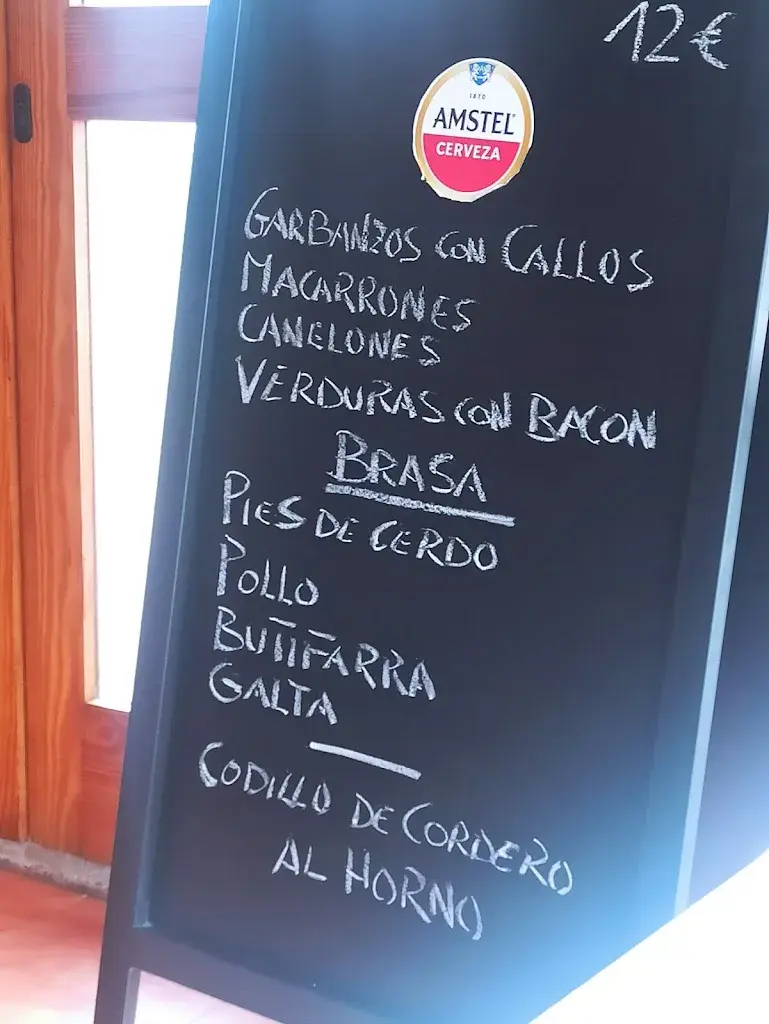 12€
1870
AMSTEL
CERVEZA
GARBANZOS CON CALLOS
MACARRONES
CANELONES
VERDURAS CON BACON
BRASA
PIES DE CERDO
POLLO
BUTIFARRA
GALTA
CODILLO DE CORDERO
AL HORNO